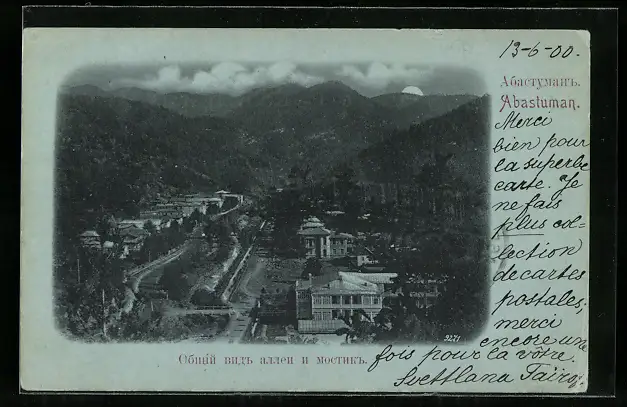 13-6-00.
Абастуманъ.
Abastuman.
Merci
bien pour
la superbe
carte. Je
ne fais
plus col=
lection
de cartes
postales;
merci
encore une
fois pour la vôtre.
Svettlana Taïro
9271
Общій видъ аллеи и мостикъ.